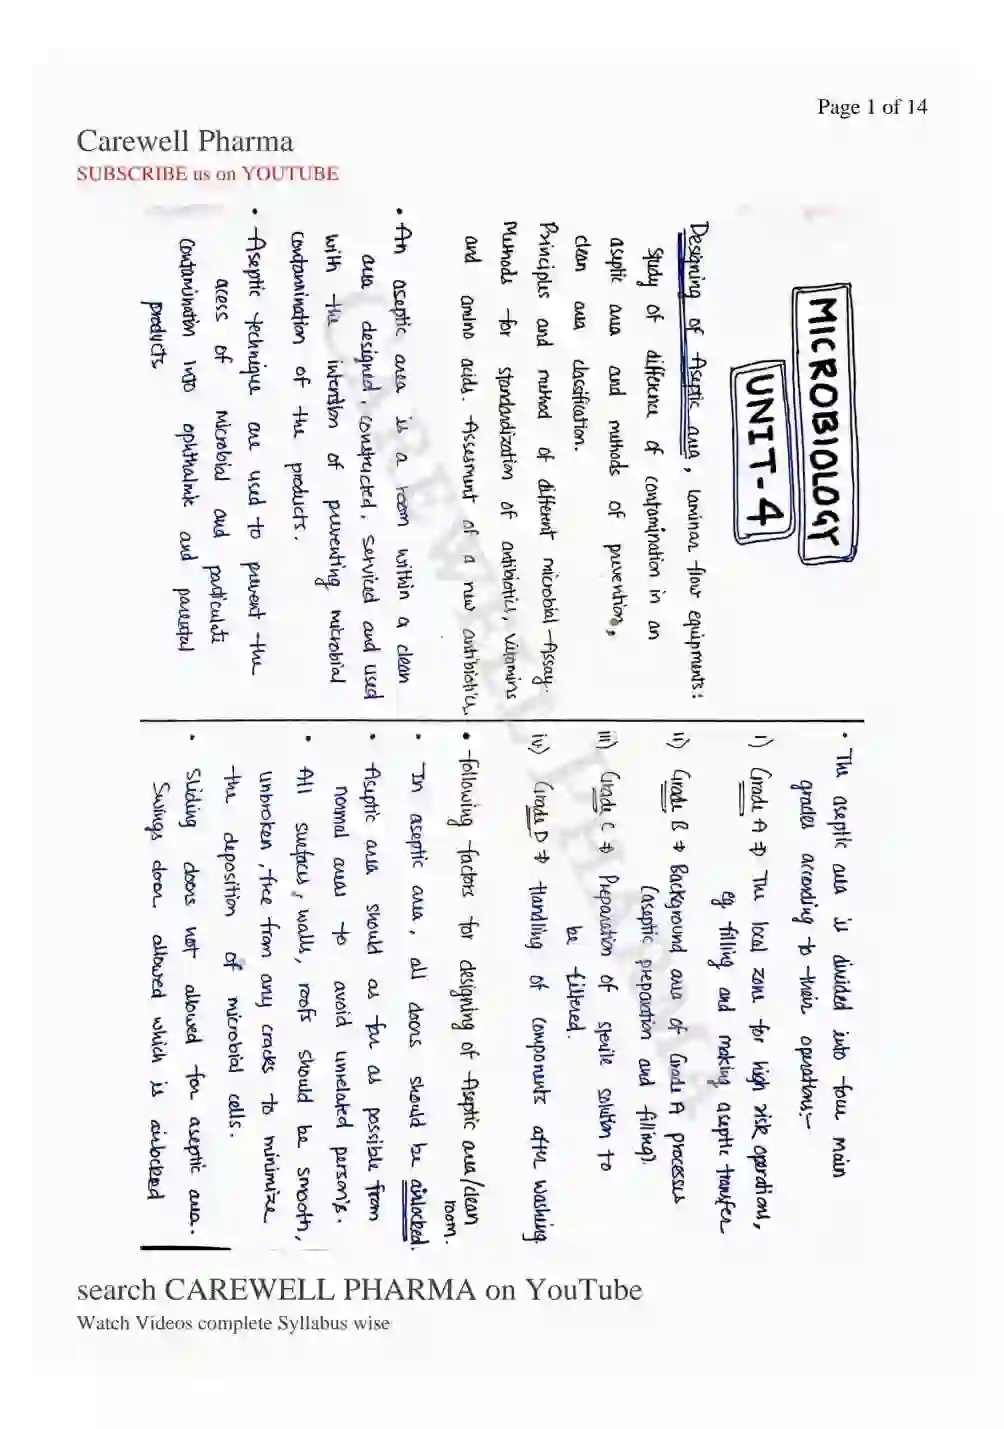 Page 1 of 14
Carewell Pharma
SUBSCRIBE us on YOUTUBE
MICROBIOLOGY
UNIT-4
Designing of Aseptic area, laminar flow equipments:
study of difference of contamination in an
aseptic area and methods of prevention,
clean area classification.
Principles and method of different microbial Assay.
Methods for standardization of antibiotics, vitamins
and amino acids. Assesment of a new antibiotics.
• An aseptic area is a room within a clean
area designed, constructed, serviced and used
with the intention of preventing microbial
contamination of the products.
• Aseptic technique are used to prevent the
acess of microbial and particulate
contamination into ophthalmic and parental
products.
• The aseptic area is divided into four main
grades according to their operations:-
i) Grade A ⇒ The local zone for high risk operations,
eg filling and making aseptic transfer
ii) Grade B ⇒ Background area of Grade A processes
(aseptic preparation and filling).
iii) Grade C ⇒ Preparation of sterile solution to
be filtered.
iv) Grade D ⇒ Handling of components after washing.
• following factors for designing of Aseptic area/clean
room.
• In aseptic area, all doors should be airlocked.
• Aseptic area should as far as possible from
normal areas to avoid unrelated person's.
• All surfaces, walls, roofs should be smooth,
unbroken, free from any cracks to minimize
the deposition of microbial cells.
• Sliding doors not allowed for aseptic area.
Swings door allowed which is airlocked
CAREWELL PHARMA
search CAREWELL PHARMA on YouTube
Watch Videos complete Syllabus wise